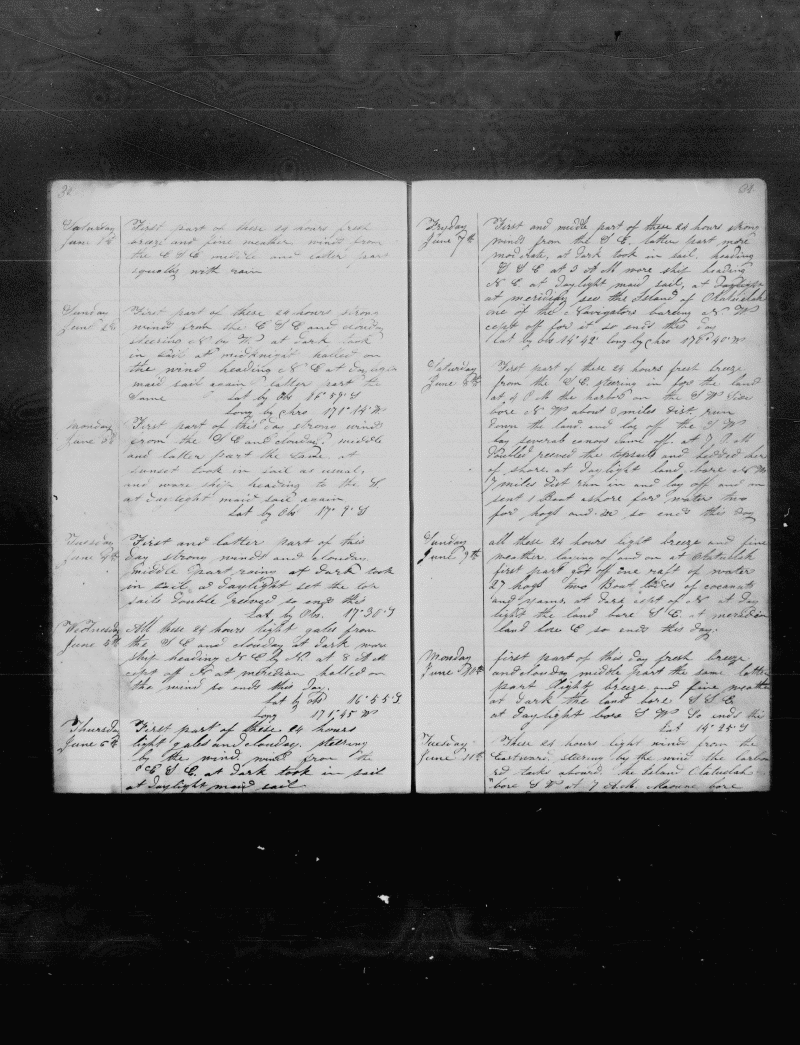 Saturday
June 1st
First part of these 24 hours fresh
and fine weather wind from
the E S E middle and latter part
squally with rain
Sunday
June 2d
First part of these 24 hours strong
wind from the E S E and clouday
steering N at dark took
in sail at midknight halled on
the wind heading N E at daylight
maid sail again latter part the
Same Lat by Obs 16° 59' S
Long by chro 171° 14' W
Monday
June 3d
First part of this day strong wind
from the S E and clouday middle
and latter part the Same at
sunset took in sail as usual,
and ware ship heading to the S
at daylight maid sail again
Lat by Obs 17° 9' S
Tuesday
June 4th
First and latter part of this
day strong winds and clouday.
middle part rainy at dark took
in sail at daylight set the top
sails double reefed so ends this
Lat by Obs. 17° 30' S
Wednesday
June 5th
All these 24 hours light gales from
the S E and clouday at dark wore
ship heading N E by N. at 8 A M
kept off N at meridian halled on
the wind so ends this Day.
Lat by Obs 16° 55' S
Long 171° 45' W
Thursday
June 6th
First part of these 24 hours
light gales and clouday. steering
by the wind, wind from the
E S E. at dark took in sail
at daylight maid sail
Fryday
June 7th
First and midle part of these 24 hours strong
winds from the S E. latter part more
modrate, at Dark took in sail. heading
S S E at 3 A M wore ship heading
N E at Daylight maid sail, at
at meridian see the Island of Olatuelah
one of the Navigators baring N W
cept off for it so ends this day
Lat by obs 14° 42' long by chro 170° 40' W
Saturday
June 8th
First part of these 24 hours fresh breeze
from the S E. steering in for the land
at 4 P M the harbor on the S W Side
bore N W about 3 miles dist. run
down the land and lay off the S W
bay several canoes came off. at 7 P M
doubled reeved the topsails and hedded her
of shore, at Daylight land bare
7 miles dist run in and lay off and on
sent 1 Boat ashore for water two
for hogs and so ends this day
Sunday
June 9th
all these 24 hours light breeze and fine
weather laying of and on at Olatuelah
first part got off one raft of water
27 hogs two Boat lodes of cocanuts
and yams, at dark cept of N at day
light the land bore S E. at meridian
land bore E so ends this day.
Monday
June 10th
first part of this day fresh breeze
and clouday middle part the same latter
part light breeze and fine weather
at dark the land bore S S E
at daylight bore S W So ends this
Lat 14° 25' S
Tuesday
June 11th
These 24 hours light winds from the
Eastward. steering by the wind the larbo
rd tacks aboard. the Island Olatuelah
bore S W at 7 A M. Maouna bore